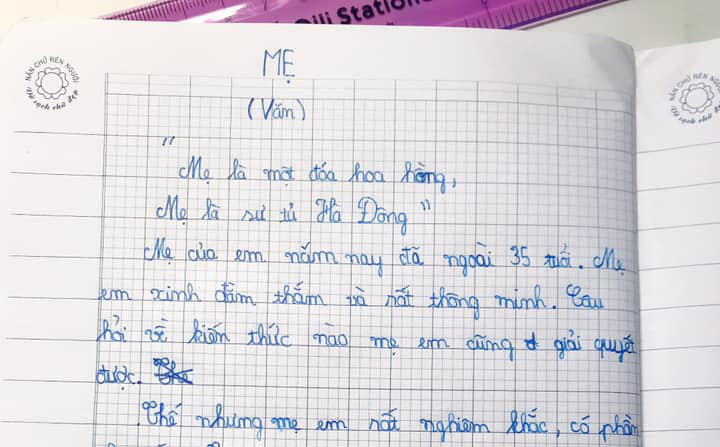 Dili Station
NẮN CHỮ RÈN NGƯỜI
Vở sạch chữ đẹp
NẮN CHỮ RÈN NGƯỜI
Vở sạch chữ đẹp
MẸ
(Văn)
"Mẹ là một đóa hoa hồng,
Mẹ là sư tử Hà Đông"
Mẹ của em năm nay đã ngoài 35 tuổi. Mẹ
em xinh đằm thắm và rất thông minh. Câu
hỏi về kiến thức nào mẹ em cũng giải quyết
được.
Thế nhưng mẹ em rất nghiêm khắc, có phần